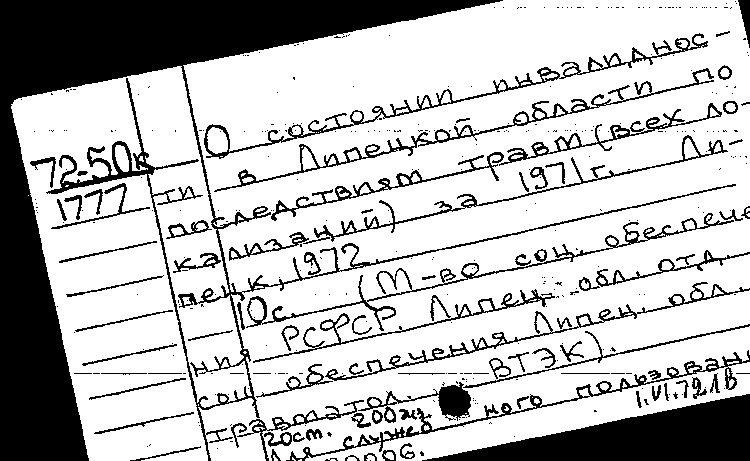 72-50к
1777
О состоянии инвалиднос-
ти в Липецкой области по
последствиям травм (всех ло-
кализаций) за 1971 г. Ли-
пецк, 1972.
10 с. (М-во соц. обеспече
ния РСФСР. Липец. обл. отд.
соц обеспечения. Липец. обл.
травматол. ВТЭК).
20 ст. 200 экз.
Для служеб ного пользован
1.VI.72